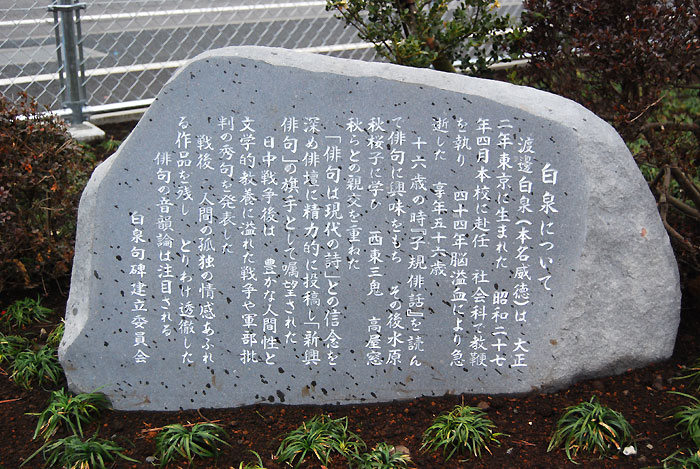 白泉について
渡邊白泉(本名威徳)は 大正
二年東京に生まれた 昭和二十七
年四月本校に赴任 社会科で教鞭
を執り 四十四年脳溢血により急
逝した 享年五十六歳
十六歳の時『子規俳話』を読ん
で俳句に興味をもち その後水原
秋桜子に学び 西東三鬼 高屋窓
秋らとの親交を重ねた
「俳句は現代の詩」との信念を
深め俳壇に精力的に投稿し「新興
俳句」の旗手として嘱望された
日中戦争後は 豊かな人間性と
文学的教養に溢れた戦争や軍部批
判の秀句を発表した
戦後 人間の孤独の情感あふれ
る作品を残し とりわけ透徹した
俳句の音韻論は注目される
白泉句碑建立委員会